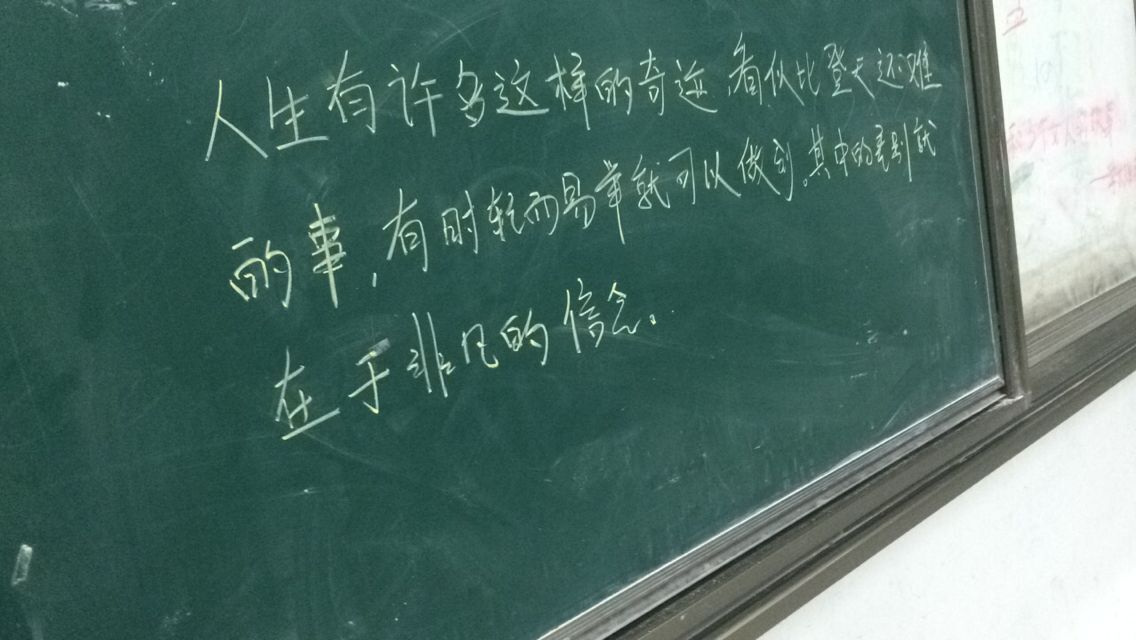 人生有许多这样的奇迹,看似比登天还难
的事,有时轻而易举就可以做到。其中的差别就
在于非凡的信念。